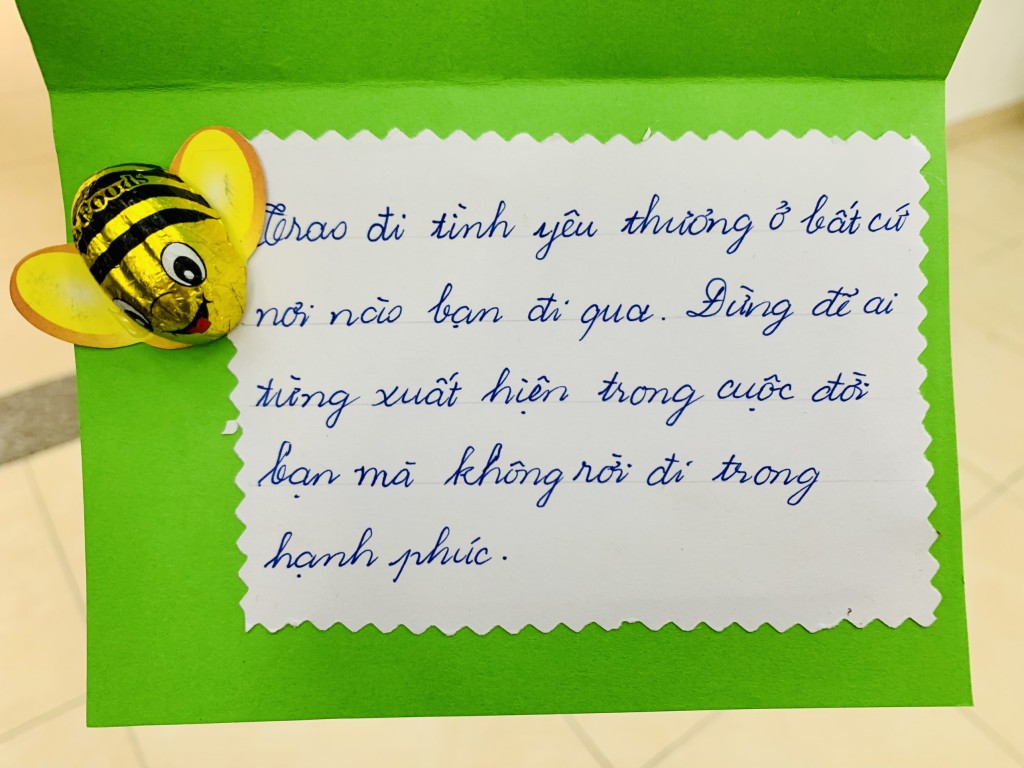 FOODS
Trao đi tình yêu thương ở bất cứ
nơi nào bạn đi qua. Đừng để ai
từng xuất hiện trong cuộc đời
bạn mà không rời đi trong
hạnh phúc.